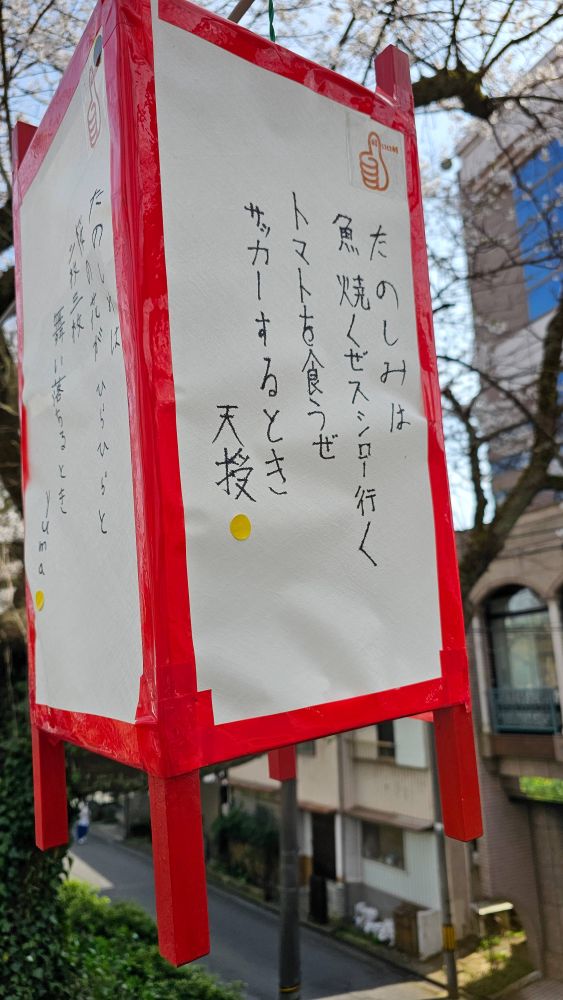 たのしみは
魚焼くぜスシロー行く
トマトを食うぜ
サッカーするとき
天授
たのしみは
桜の花が ひらひらと
二枚三枚
舞い落ちるとき
yuma